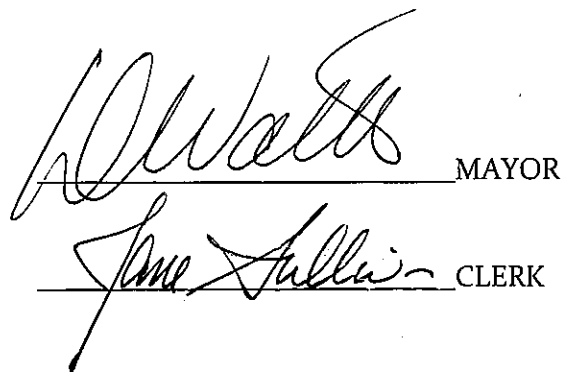 DWatts MAYOR
Jane Sullivan CLERK